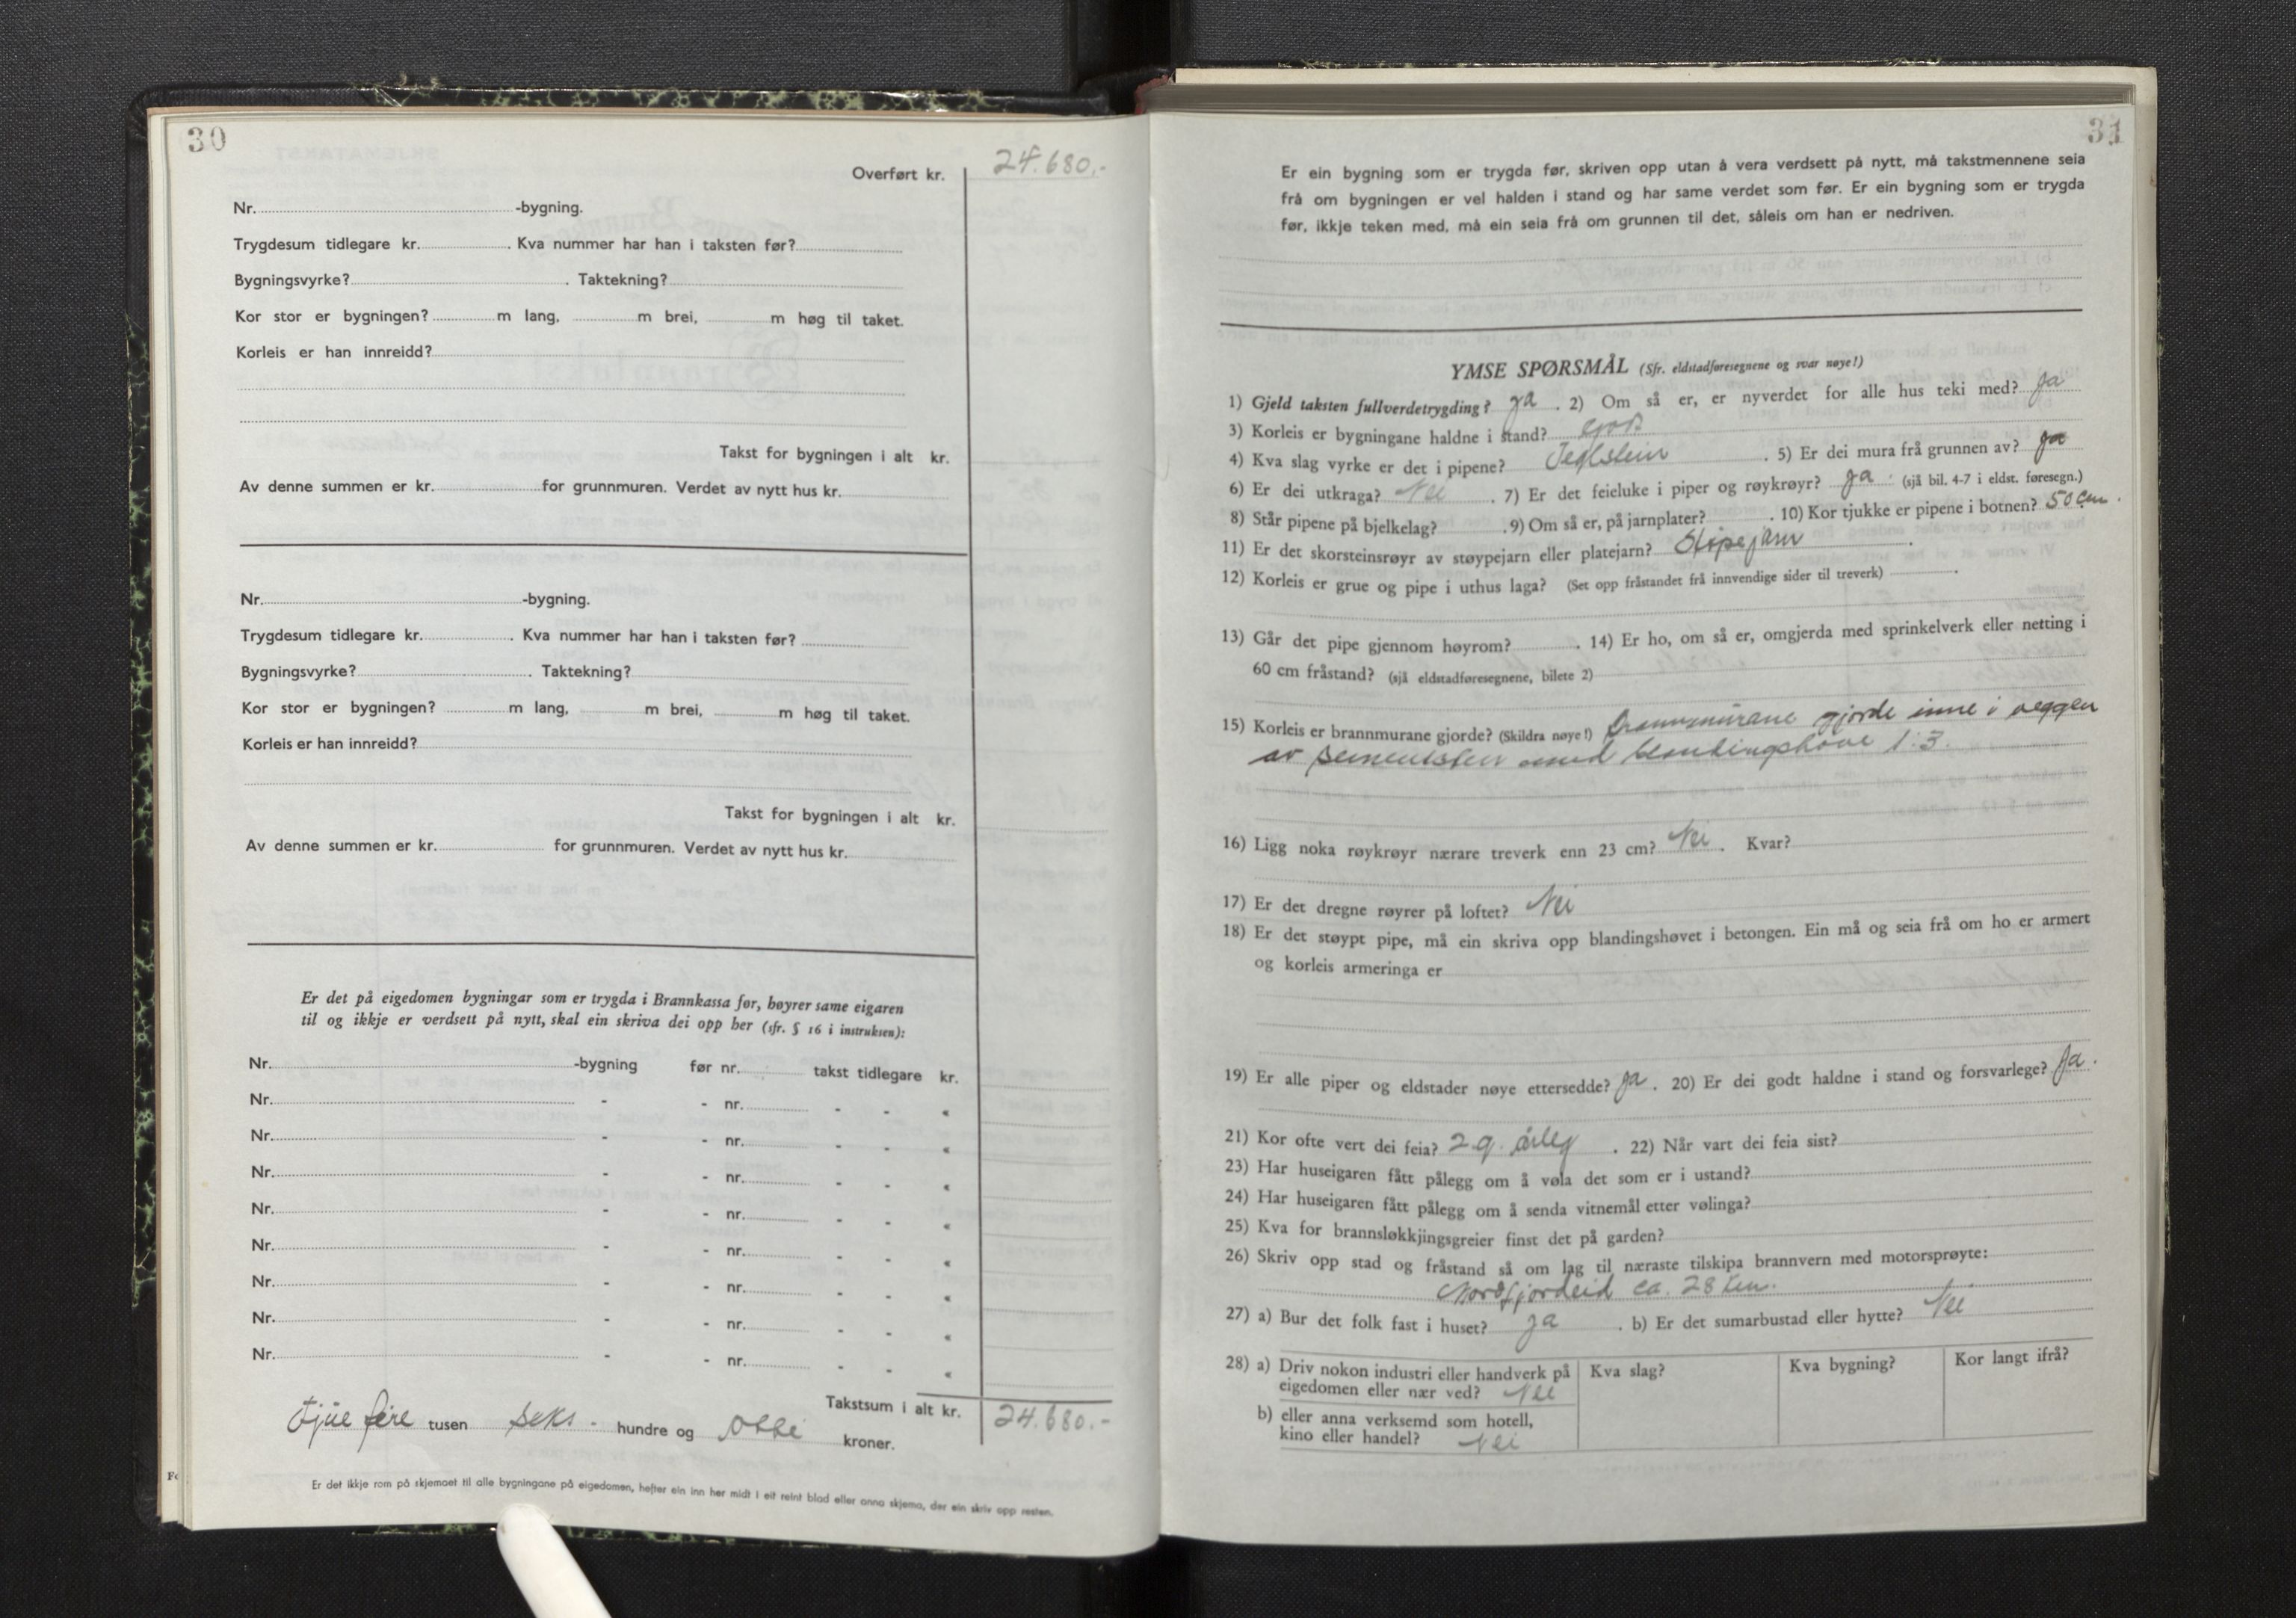 30
Overført kr. 24.680.-
Nr. -bygning.
Trygdesum tidlegare kr. . Kva nummer har han i taksten før?
Bygningsvyrke? . Taktekning?
Kor stor er bygningen? m lang, m brei, m høg til taket.
Korleis er han innreidd?
Takst for bygningen i alt kr.
Av denne summen er kr. for grunnmuren. Verdet av nytt hus kr.
Nr. -bygning.
Trygdesum tidlegare kr. . Kva nummer har han i taksten før?
Bygningsvyrke? . Taktekning?
Kor stor er bygningen? m lang, m brei, m høg til taket.
Korleis er han innreidd?
Takst for bygningen i alt kr.
Av denne summen er kr. for grunnmuren. Verdet av nytt hus kr.
Er det på eigedomen bygningar som er trygda i Brannkassa før, høyrer same eigaren
til og ikkje er verdsett på nytt, skal ein skriva dei opp her (sfr. § 16 i instruksen):
Nr. -bygning før nr. takst tidlegare kr.
Nr. - - nr. - - «
Nr. - - nr. - - «
Nr. - - nr. - - «
Nr. - - nr. - - «
Nr. - - nr. - - «
Nr. - - nr. - - «
Nr. - - nr. - - «
Nr. - - nr. - - «
Takstsum i alt kr. 24.680.-
tjue feire tusen seks - hundre og otti kroner.
Er det ikkje rom på skjemaet til alle bygningane på eigedomen, hefter ein inn her midt i eit reint blad eller anna skjema, der ein skriv opp resten.
31
Er ein bygning som er trygda før, skriven opp utan å vera verdsett på nytt, må takstmennene seia
frå om bygningen er vel halden i stand og har same verdet som før. Er ein bygning som er trygda
før, ikkje teken med, må ein seia frå om grunnen til det, såleis om han er nedriven.
YMSE SPØRSMÅL (Sfr. eldstadføresegnene og svar nøye!)
1) Gjeld taksten fullverdetrygding? Ja . 2) Om så er, er nyverdet for alle hus teki med? Ja
3) Korleis er bygningane haldne i stand? godt
4) Kva slag vyrke er det i pipene? Teglstein . 5) Er dei mura frå grunnen av? Ja
6) Er dei utkraga? Nei . 7) Er det feieluke i piper og røykrøyr? Ja (sjå bil. 4-7 i eldst. føresegn.)
8) Står pipene på bjelkelag? . 9) Om så er, på jarnplater? . 10) Kor tjukke er pipene i botnen? 50 cm.
11) Er det skorsteinsrøyr av støypejarn eller platejarn? Støpejarn .
12) Korleis er grue og pipe i uthus laga? (Set opp fråstandet frå innvendige sider til treverk) .
13) Går det pipe gjennom høyrom? . 14) Er ho, om så er, omgjerda med sprinkelverk eller netting i
60 cm fråstand? (sjå eldstadføresegnene, bilete 2)
15) Korleis er brannmurane gjorde? (Skildra nøye!) Brannmurane gjorde inne i veggen
av sementsten med blandingshøve 1:3.
16) Ligg noka røykrøyr nærare treverk enn 23 cm? Nei . Kvar?
17) Er det dregne røyrer på loftet? Nei
18) Er det støypt pipe, må ein skriva opp blandingshøvet i betongen. Ein må og seia frå om ho er armert
og korleis armeringa er
19) Er alle piper og eldstader nøye ettersedde? Ja . 20) Er dei godt haldne i stand og forsvarlege? Ja.
21) Kor ofte vert dei feia? 2 g. årleg . 22) Når vart dei feia sist?
23) Har huseigaren fått pålegg om å vøla det som er i ustand?
24) Har huseigaren fått pålegg om å senda vitnemål etter vølinga?
25) Kva for brannsløkkjingsgreier finst det på garden?
26) Skriv opp stad og fråstand så om lag til næraste tilskipa brannvern med motorsprøyte:
Nordfjordeid ca. 28 km.
27) a) Bur det folk fast i huset? Ja . b) Er det sumarbustad eller hytte? Nei
28) a) Driv nokon industri eller handverk på Kva slag? Kva bygning? Kor langt ifrå?
eigedomen eller nær ved? Nei
b) eller anna verksemd som hotell,
kino eller handel? Nei